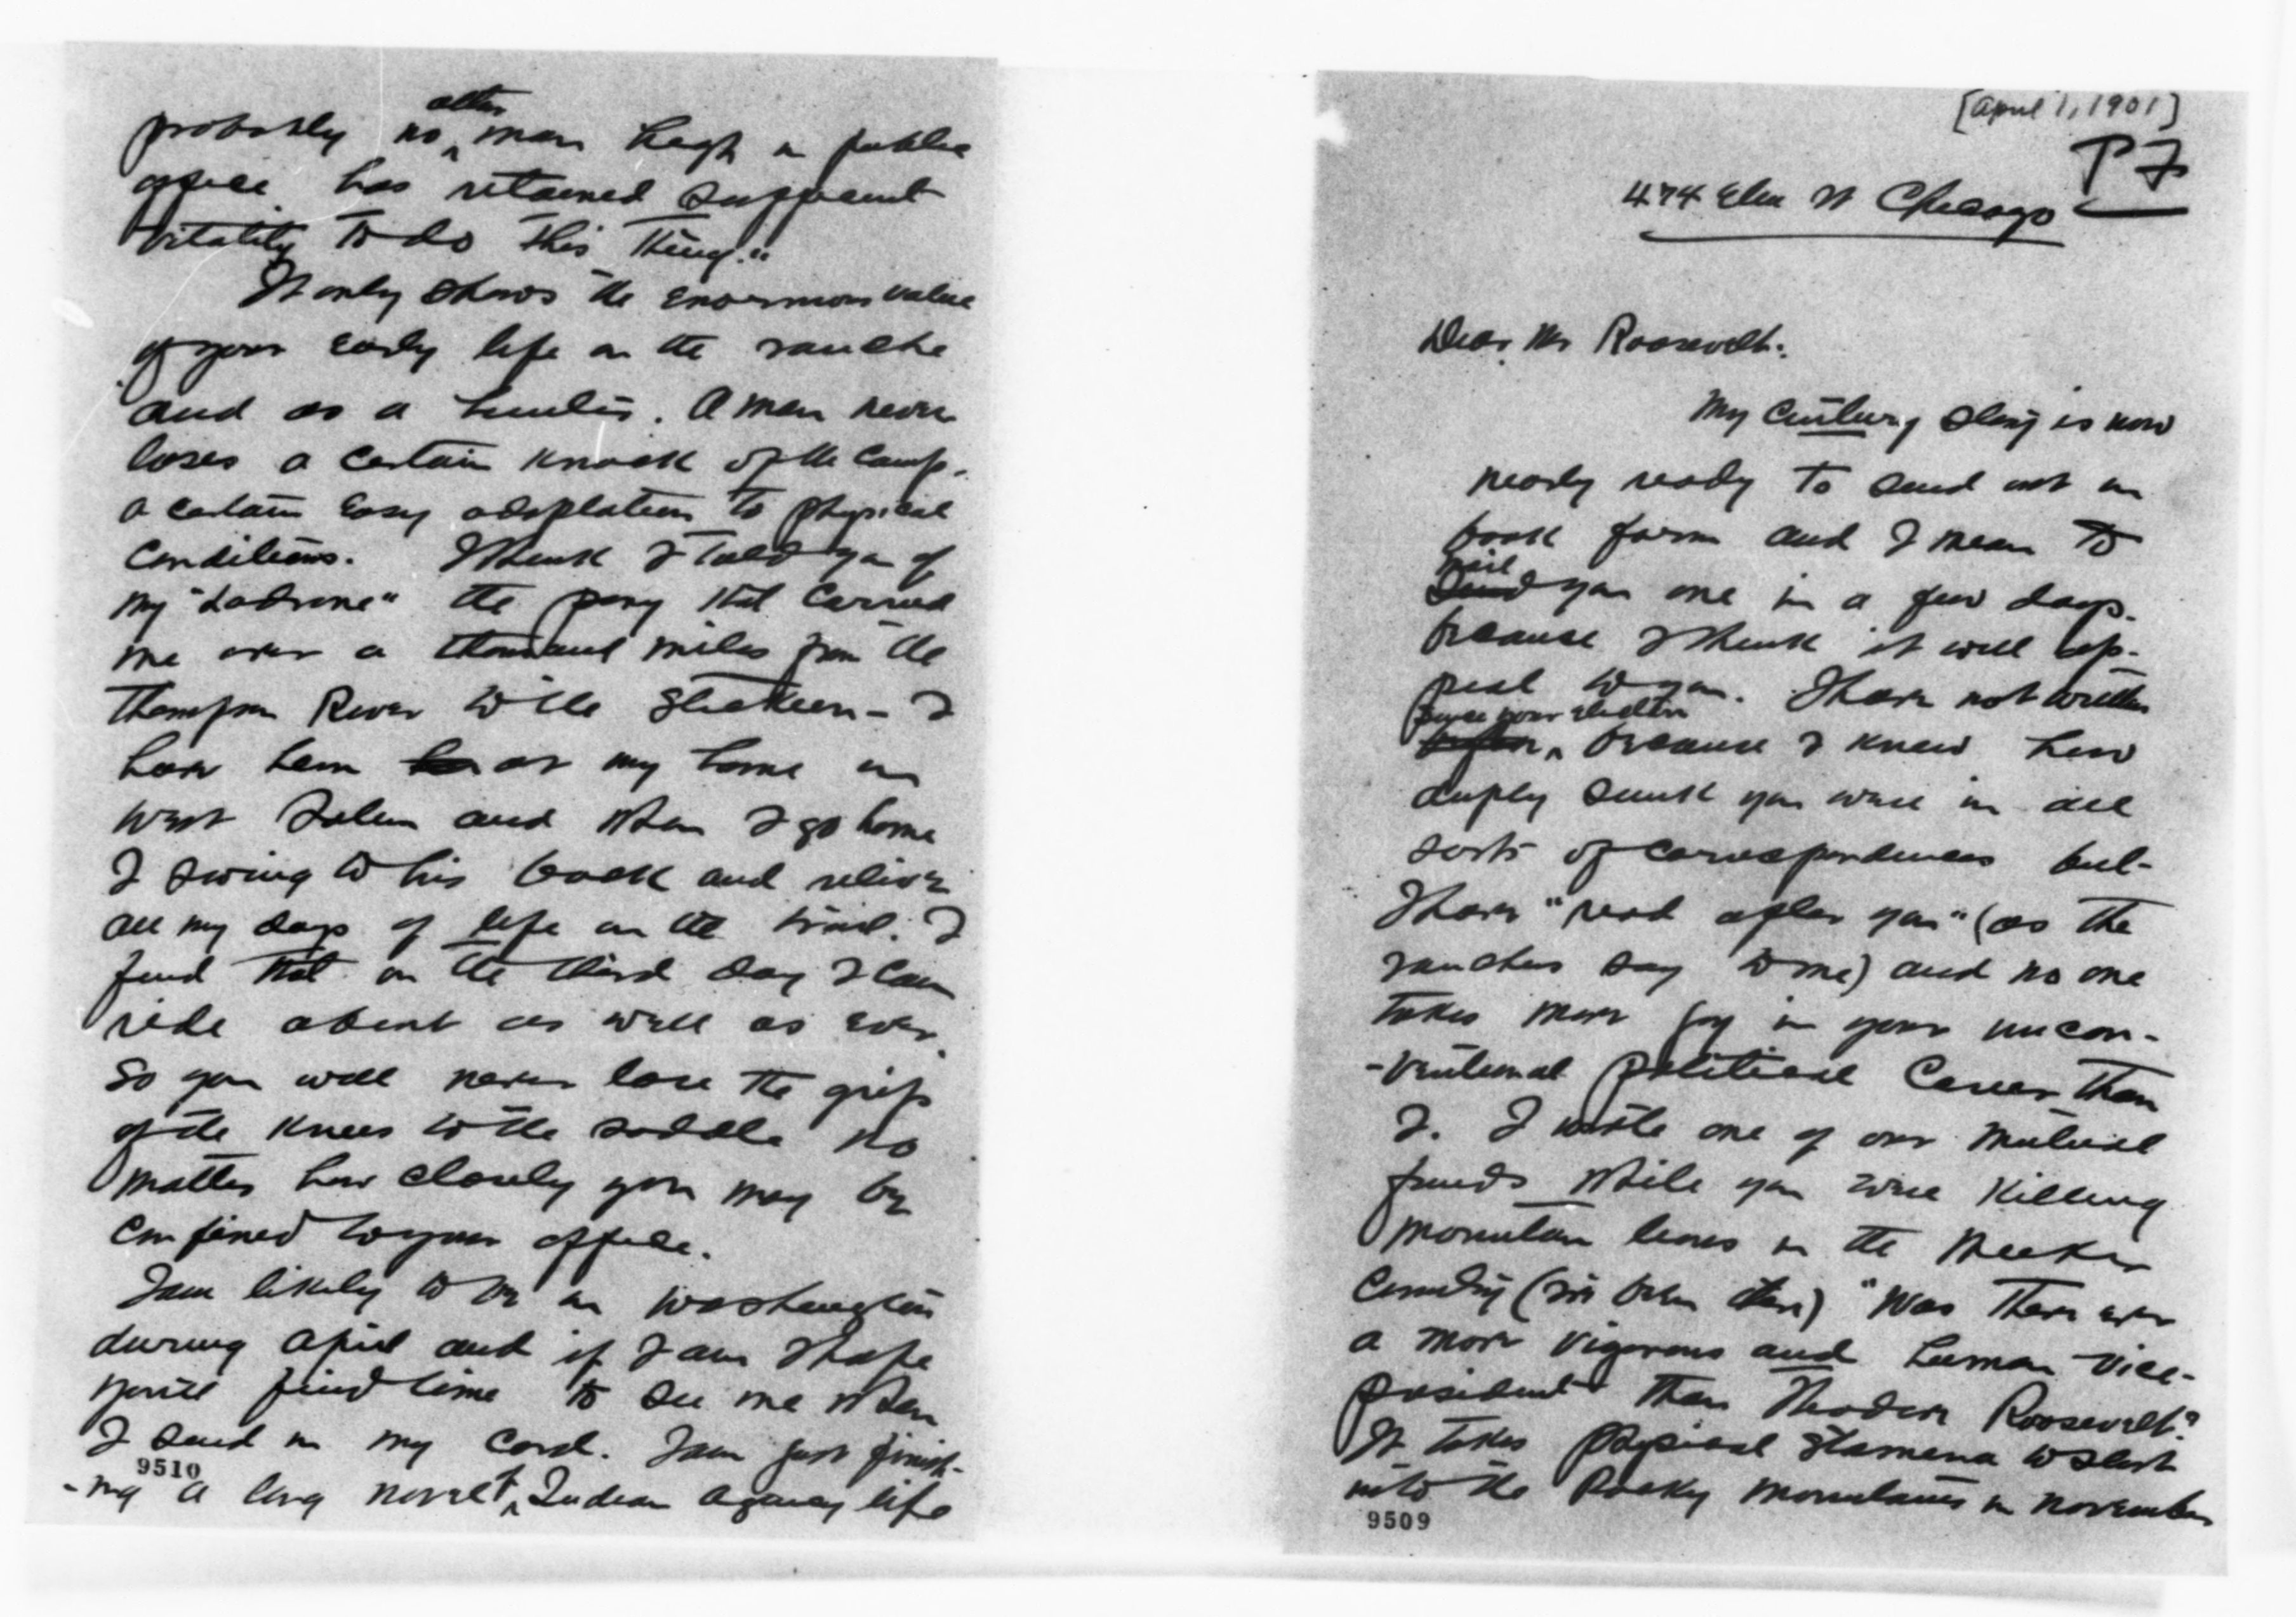 [April 1, 1901]
P7
474 Elm St Chicago
Dear Mr Roosevelt:
My Century story is now
nearly ready to send out in
book form and I mean to
mail
send you one in a few days.
because I think it will ap-
peal to you. I have not written
since your election
before, because I knew how
deeply sunk you were in all
sorts of correspondences but-
I have "read after you" (as the
ranchers say to me) and no one
takes more joy in your uncon-
-ventional political career than
I. I wrote one of our mutual
friends while you were killing
mountain lions in the Meeker
Country (I've been there) "Was there ever
a more vigorous and human Vice-
president than Theodore Roosevelt?
It takes physical stamena to start
into the Rocky mountains in november
9509
probably no other man high in public
office has retained sufficient
vitality to do this thing."
It only shows the enormous value
of your early life on the ranche
and as a hunter. A man never
loses a certain knack of the camp.
a certain easy adaptation to physical
conditions. I think I told you of
my "Ladrone" the pony that carried
me over a thousand miles from the
Thompson River to the Stickeen - I
have him at my home in
West Salem and when I go home
I swing to his back and relive
all my days of life on the trail. I
find that on the third day I can
ride about as well as ever.
So you will never lose the grip
of the knees to the saddle no
matter how closely you may be
confined to your office.
I am likely to be in Washington
during April and if I am I hope
you'll find time to see me when
I send in my card. I am just finish-
9510
-ing a long novel of Indian agency life